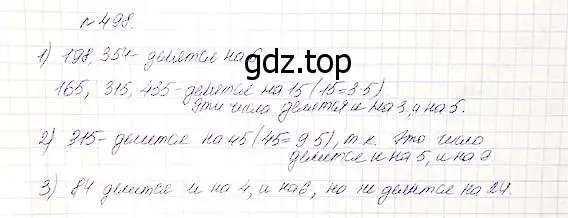 №498.
1) 198, 354- делятся на 6
gdz.top
165, 315, 435- делятся на 15 (15=3·5)
Эти числа делятся и на 3, и на 5.
2) 315- делится на 45 (45=9·5), т.к. это число
делится и на 5, и на 9.
3) 84 делится и на 4, и на 6, но не делится на 24.